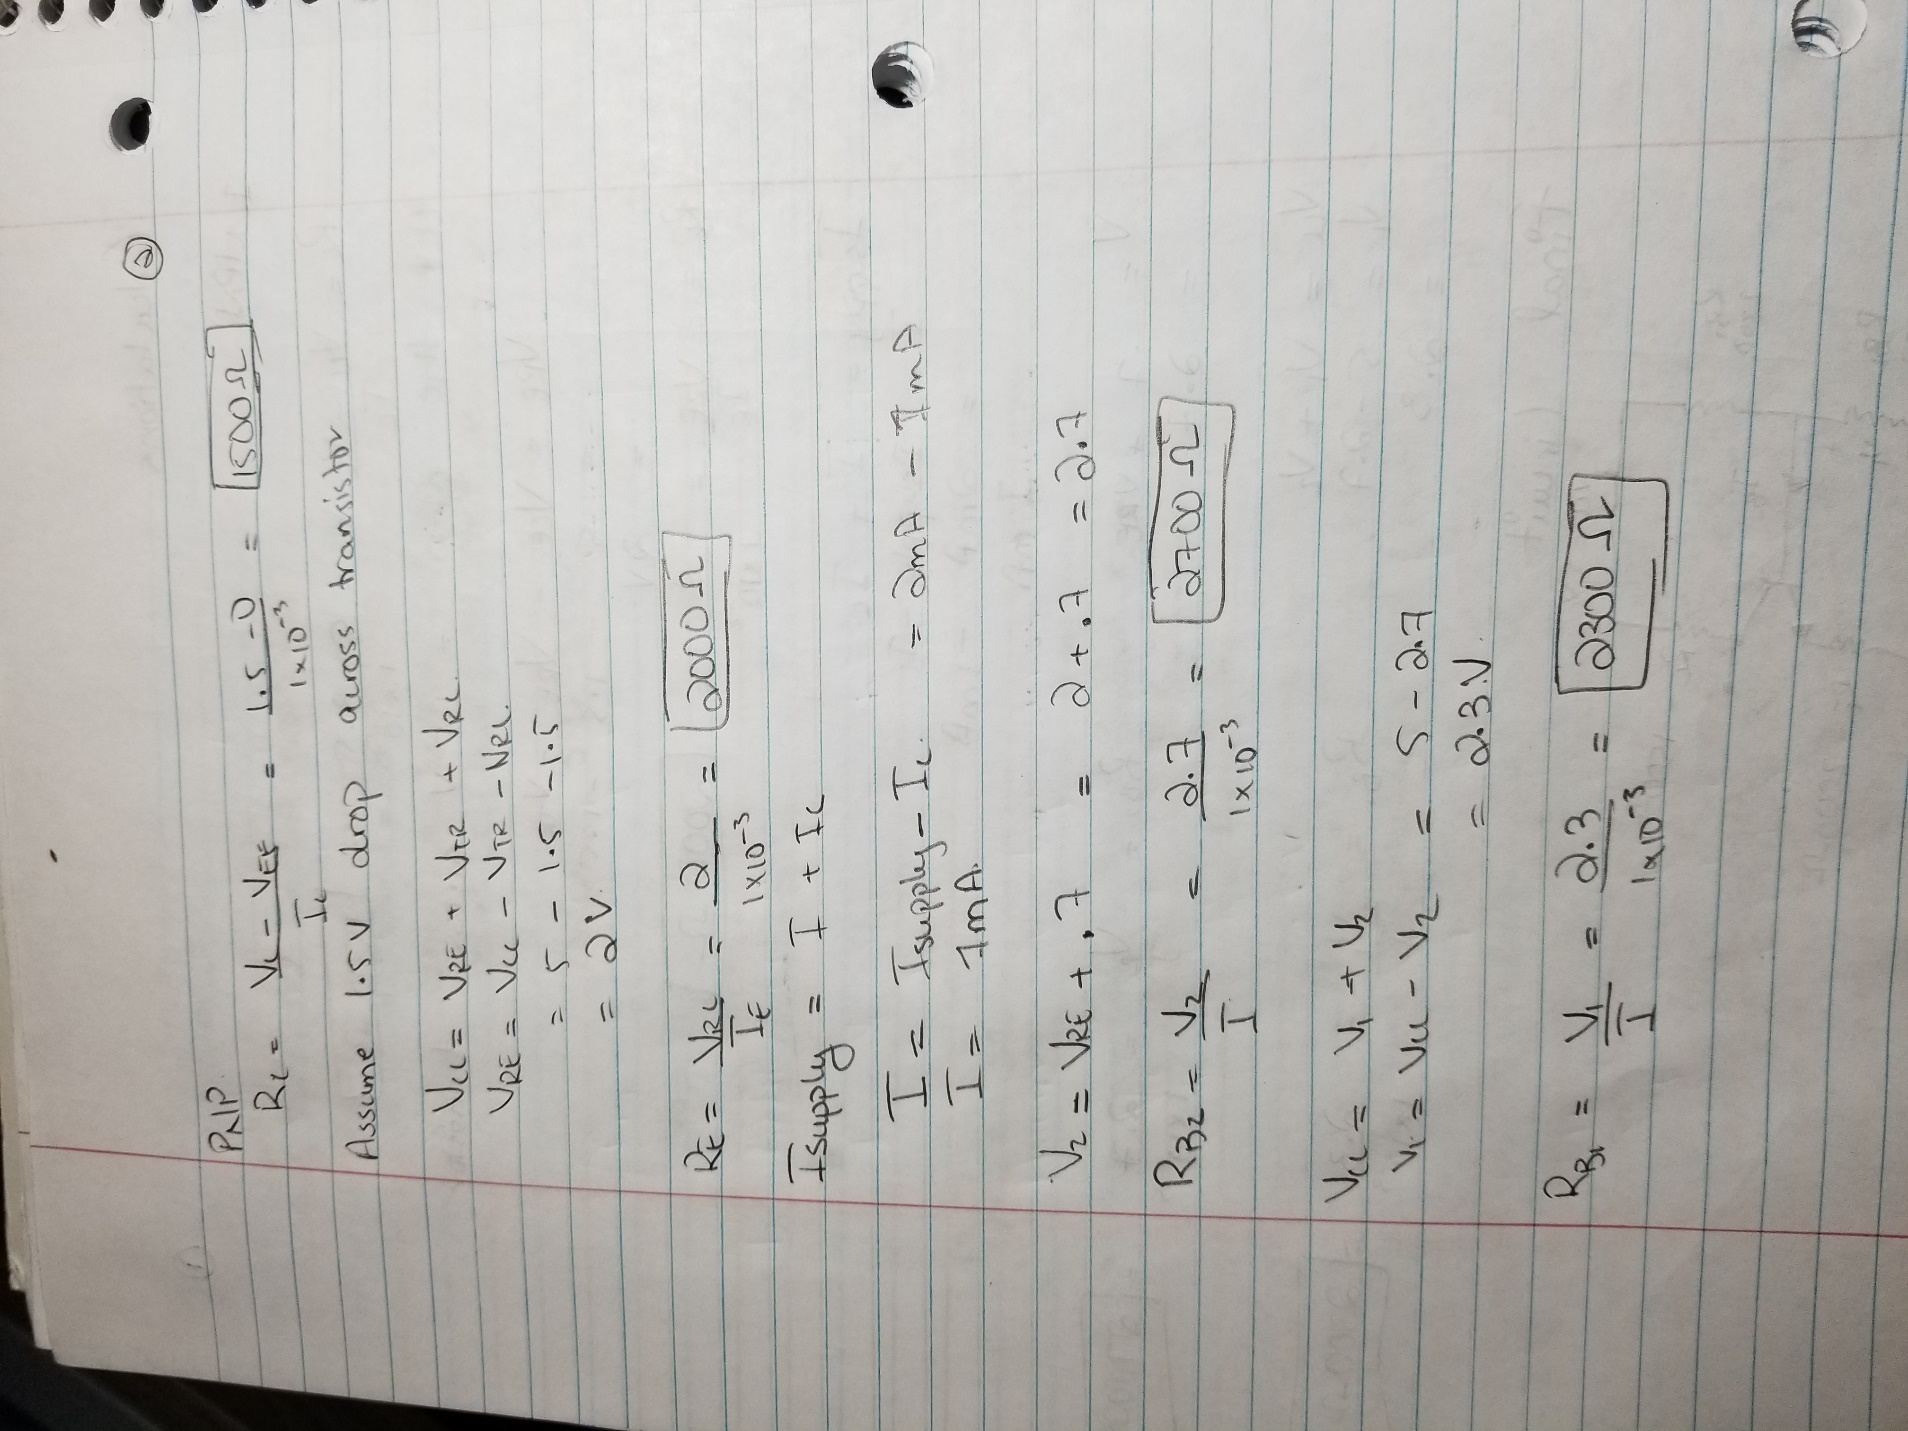 ②
PNP
Rc = Vc - VEE / Ic = 1.5 - 0 / 1x10^-3 = 1500Ω
Assume 1.5V drop across transistor
Vcc = VRE + VTR + VRC
VRE = Vcc - VTR - VRC
= 5 - 1.5 - 1.5
= 2V
RE = VRC / IE = 2 / 1x10^-3 = 2000Ω
Isupply = I + Ic
I = Isupply - Ic = 2mA - 1mA
I = 1mA
V2 = VRE + .7 = 2 + .7 = 2.7
RB2 = V2 / I = 2.7 / 1x10^-3 = 2700Ω
Vcc = V1 + V2
V1 = Vcc - V2 = 5 - 2.7
= 2.3V
RB1 = V1 / I = 2.3 / 1x10^-3 = 2300Ω